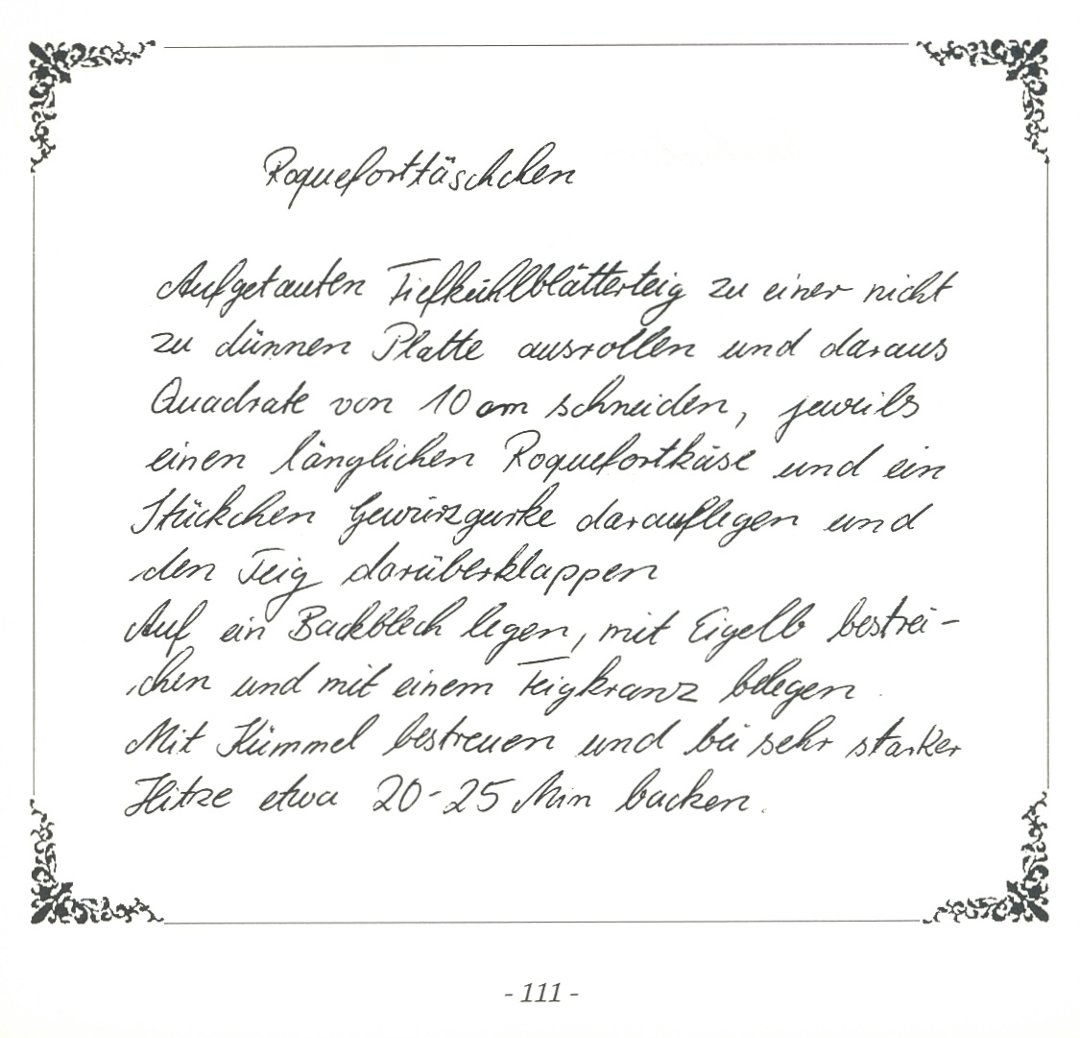 Roqueforttäschchen
Aufgetauten Tiefkühlblätterteig zu einer nicht
zu dünnen Platte ausrollen und daraus
Quadrate von 10 cm schneiden, jeweils
einen länglichen Roquefortkäse und ein
Stückchen Gewürzgurke darauflegen und
den Teig darüberklappen
Auf ein Backblech legen, mit Eigelb bestrei-
chen und mit einem Teigkranz belegen.
Mit Kümmel bestreuen und bei sehr starker
Hitze etwa 20-25 Min backen.
- 111 -